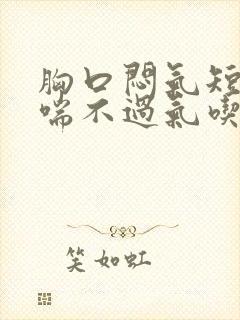 胸口悶氣短
喘不過氣喫
笑如虹